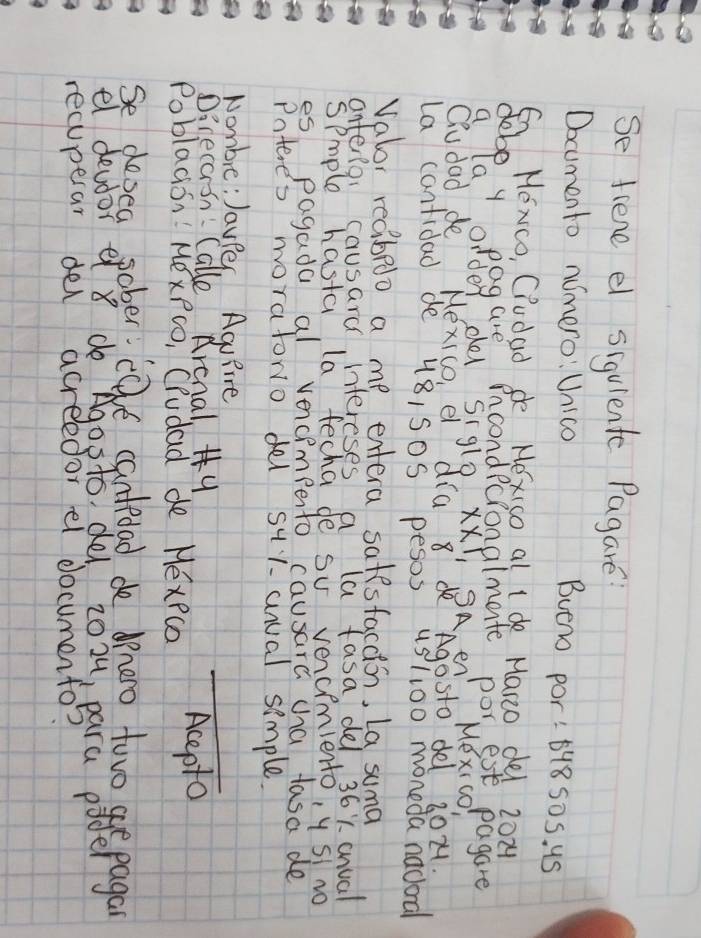 Se tiene el siguiente Pagaré:
Documento número: Unico Bueno por: $48505.45
En México, Ciudad de México al 1 de Marzo del 2024
debo y pagaré incondicionalmente por este pagare
a la orden del siglo XXI, SA en México,
Ciudad de México, el día 8 de Agosto del 2024.
La cantidad de 48,505 pesos 45/100 moneda nacional
Valor recibido a mi entera satisfacción. La suma
anterior causará intereses a la tasa del 36% anual
simple hasta la fecha de su vencimiento, y si no
es pagada al vencimiento causará una tasa de
interes moratorio del 54% anual simple.
Nombre: Javier Aguirre
Dirección: Calle Arenal #4
Población: México, Ciudad de México Acepto
Se desea saber: ¿Qué cantidad de dinero tuvo que pagar
el deudor el 8 de Agosto del 2024, para poder
recuperar del acreedor el documento?